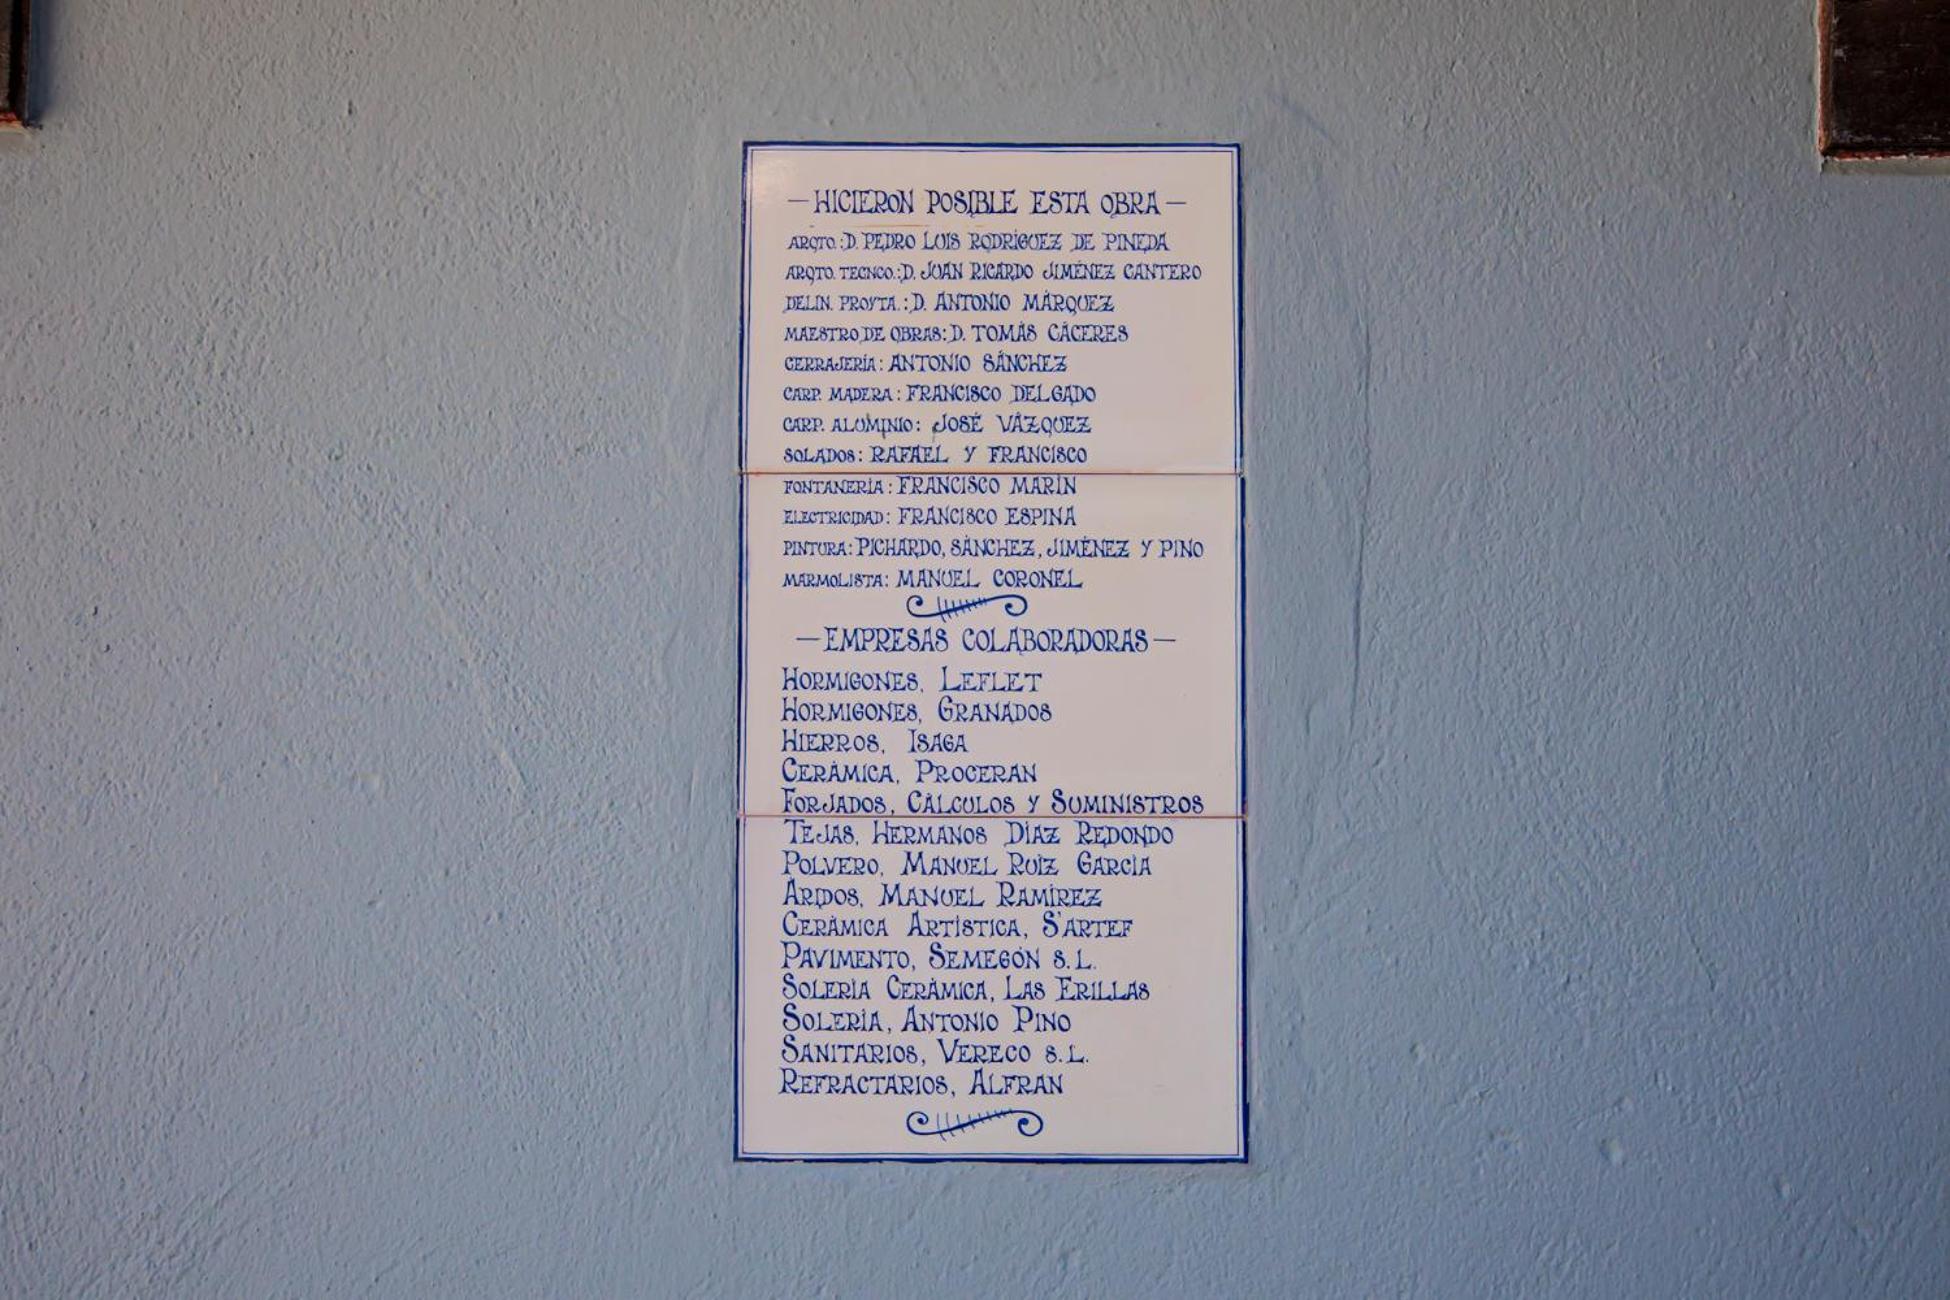 —HICIERON POSIBLE ESTA OBRA—
ARQTO.:D. PEDRO LUIS RODRÍGUEZ DE PINEDA
ARQTO. TECNCO.:D. JUAN RICARDO JIMÉNEZ CANTERO
DELIN. PROYTA.:D. ANTONIO MÁRQUEZ
MAESTRO DE OBRAS:D. TOMÁS CÁCERES
CERRAJERÍA: ANTONIO SÁNCHEZ
CARP. MADERA: FRANCISCO DELGADO
CARP. ALUMINIO: JOSÉ VÁZQUEZ
SOLADOS: RAFAEL Y FRANCISCO
FONTANERÍA: FRANCISCO MARÍN
ELECTRICIDAD: FRANCISCO ESPINA
PINTURA: PICHARDO, SÁNCHEZ, JIMÉNEZ Y PINO
MARMOLISTA: MANUEL CORONEL
—EMPRESAS COLABORADORAS—
HORMIGONES, LEFLET
HORMIGONES, GRANADOS
HIERROS, ISAGA
CERÁMICA, PROCERAN
FORJADOS, CÁLCULOS Y SUMINISTROS
TEJAS, HERMANOS DÍAZ REDONDO
POLVERO, MANUEL RUÍZ GARCÍA
ÁRIDOS, MANUEL RAMÍREZ
CERÁMICA ARTÍSTICA, S'ARTEF
PAVIMENTO, SEMEGÓN S.L.
SOLERÍA CERÁMICA, LAS ERILLAS
SOLERÍA, ANTONIO PINO
SANITARIOS, VERECO S.L.
REFRACTARIOS, ALFRAN